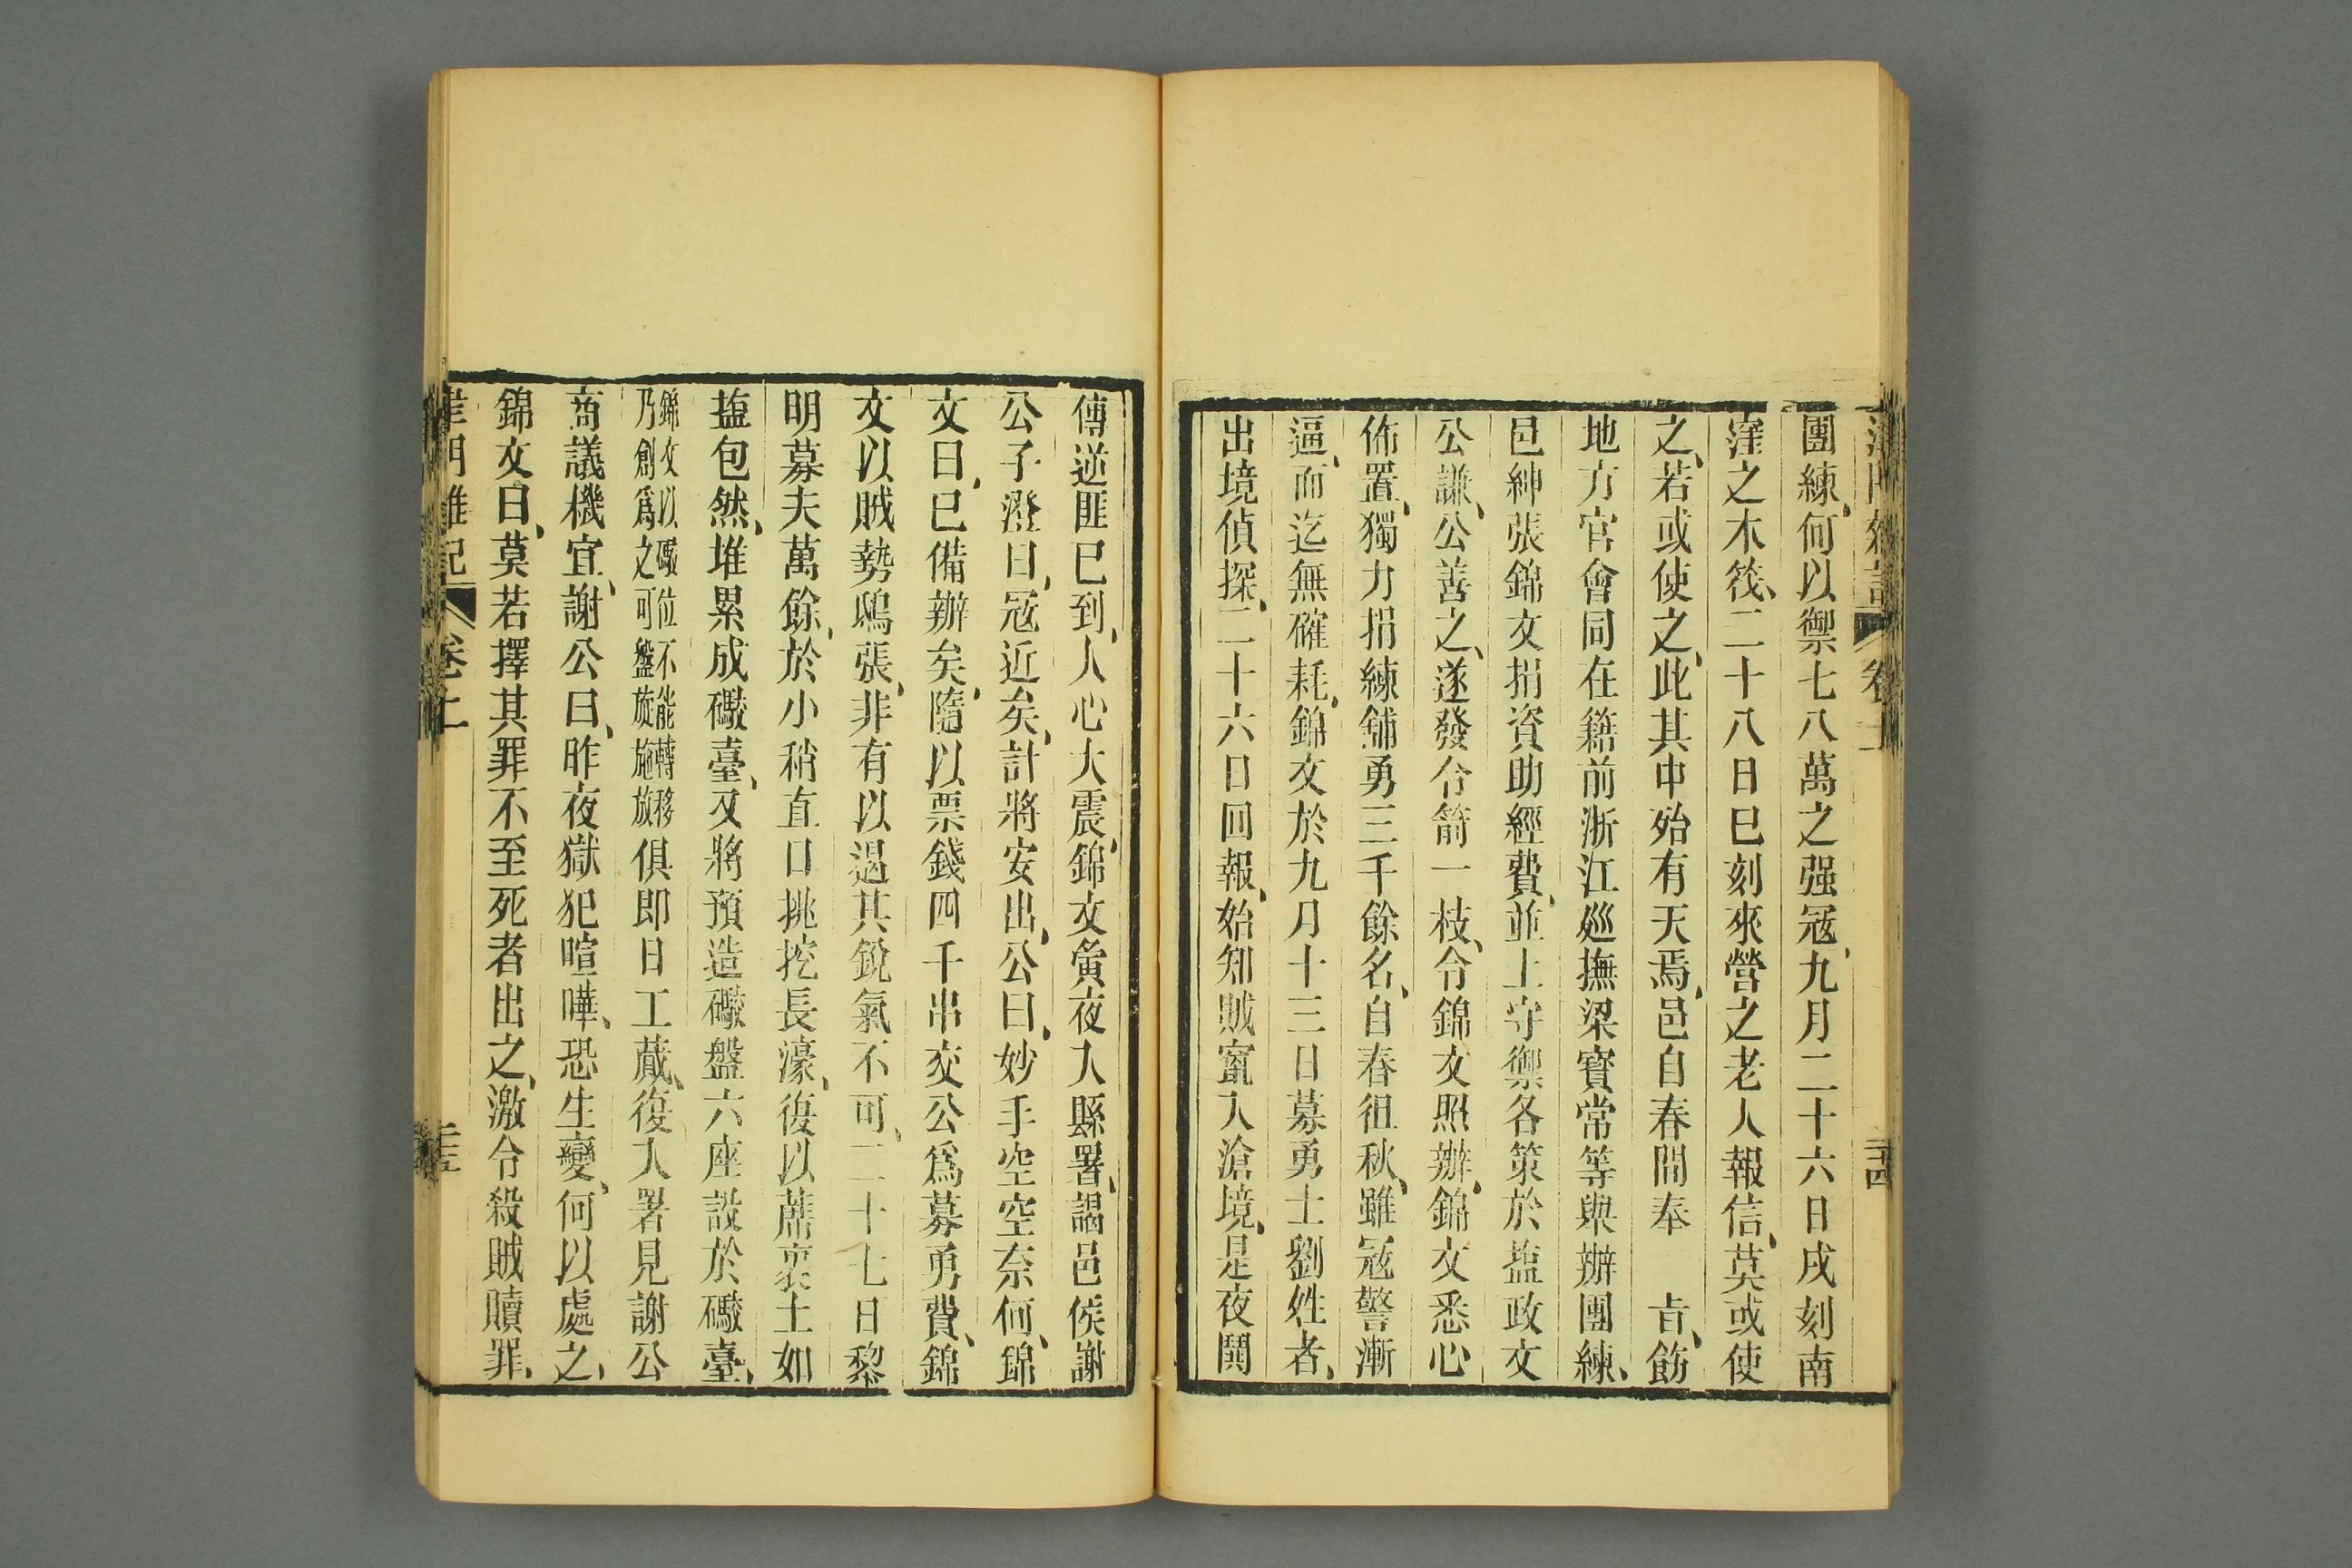 津門雜記 卷上 二十四
團練、何以禦七八萬之强冦、九月二十六日戌刻南
窪之木筏、二十八日巳刻來營之老人報信、莫或使
之、若或使之、此其中殆有天焉、邑自春間奉　旨、飭
地方官會同在籍前浙江廵撫梁寶常等與辦團練、
邑紳張錦文捐資助經費、並上守禦各策於鹽政文
公謙、公善之、遂發令箭一枝、令錦文照辦、錦文悉心
佈置、獨力捐練舖勇三千餘名、自春徂秋、雖冦警漸
逼、而迄無確耗、錦文於九月十三日募勇士劉姓者、
出境偵探、二十六日回報、始知賊竄入滄境、是夜鬨
傳逆匪已到、人心大震、錦文夤夜入縣署、謁邑侯謝
公子澄曰、冦近矣、計將安出、公曰、妙手空空奈何、錦
文曰、已備辦矣、隨以票錢四千串交公爲募勇費、錦
文以賊勢鴟張、非有以遏其銳氣不可、二十七日黎
明募夫萬餘、於小稍直口挑挖長濠、復以蔴裹土如
鹽包然、堆累成礮臺、又將預造礮盤六座設於礮臺、
錦文以礮位不能轉移
乃創爲之可盤旋施放
俱即日工蕆、復入署見謝公
商議機宜、謝公曰、昨夜獄犯喧嘩、恐生變、何以處之、
錦文曰、莫若擇其罪不至死者出之、激令殺賊贖罪、
津門雜記 卷上 二十五